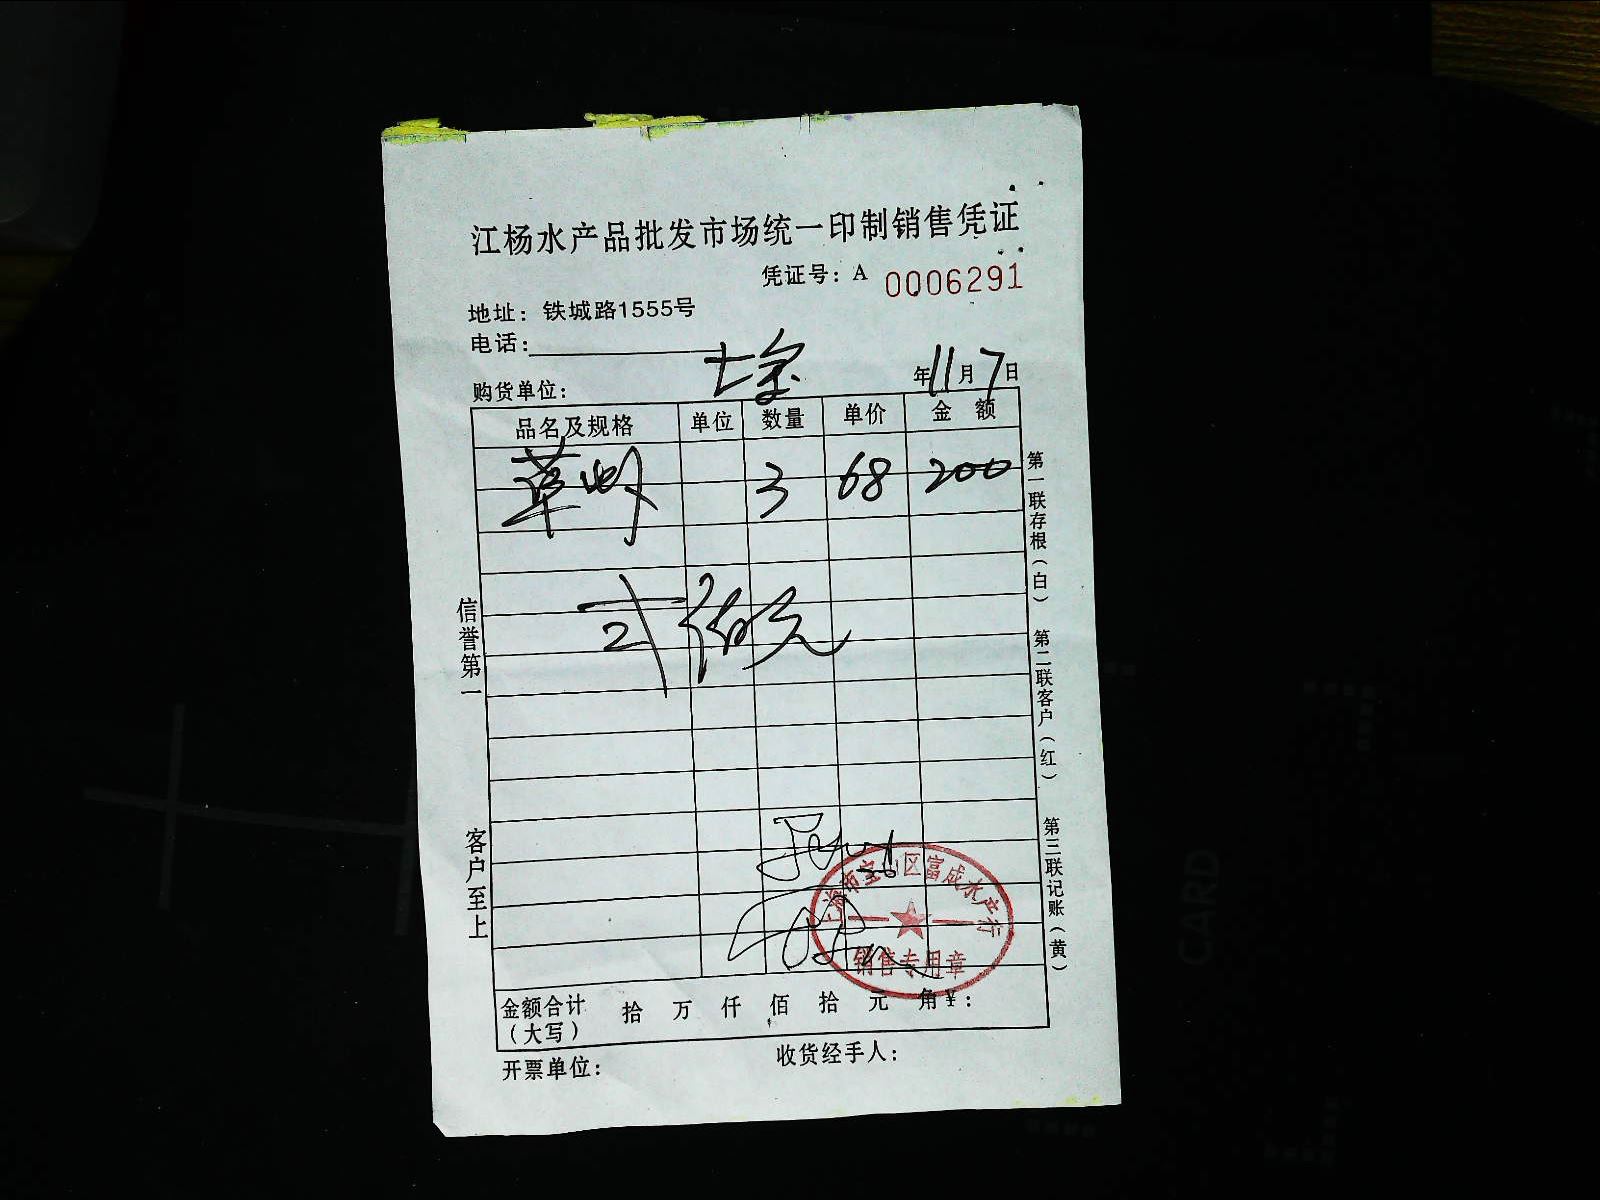 江杨水产品批发市场统一印制销售凭证
凭证号：A 0006291
地址：铁城路1555号
电话：
购货单位： 七宝 年11月7日
品名及规格 单位 数量 单价 金 额
草虾 3 68 200
弍佰元
信誉第一
客户至上
第一联存根（白）
第二联客户（红）
第三联记账（黄）
上海市宝山区富成水产行
销售专用章
金额合计（大写） 拾 万 仟 佰 拾 元 角 ¥：
开票单位： 收货经手人：